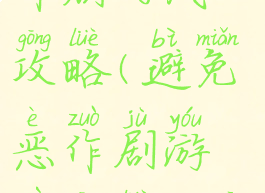 gōng lüè bì miǎn
攻略(避免
è zuò jù yóu
恶作剧游